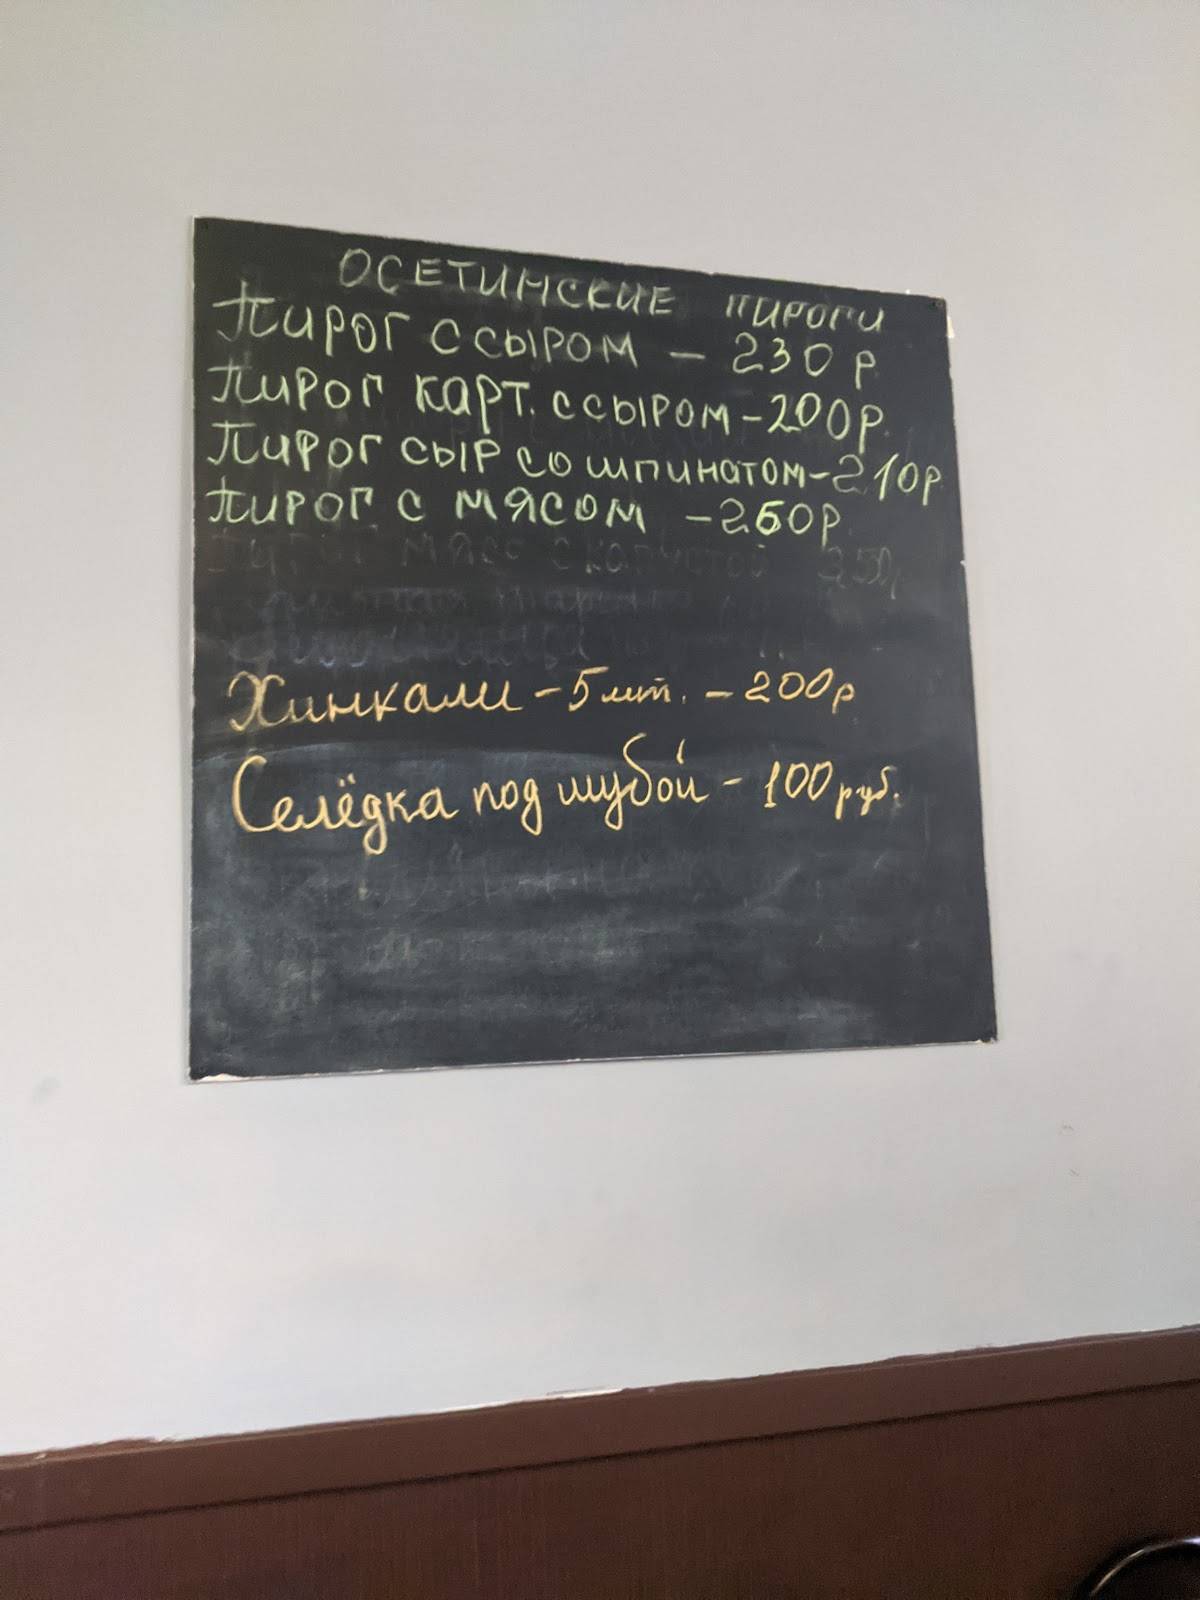 ОСЕТИНСКИЕ ПИРОГИ
ПИРОГ С СЫРОМ – 230 р
ПИРОГ КАРТ. С СЫРОМ – 200р.
ПИРОГ СЫР СО ШПИНАТОМ – 210р
ПИРОГ С МЯСОМ – 260р
Хинкали – 5 шт. – 200р
Селёдка под шубой – 100 руб.